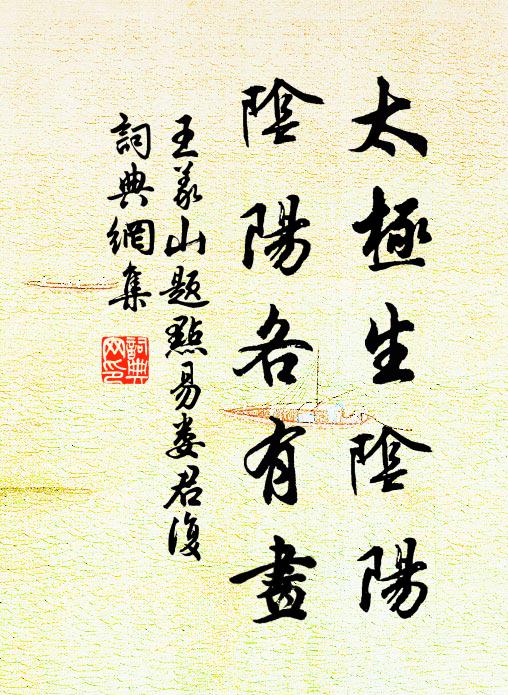 太極生陰陽
陰陽各有畫
王義山題點易婁君復
詞典網集
詞典網印